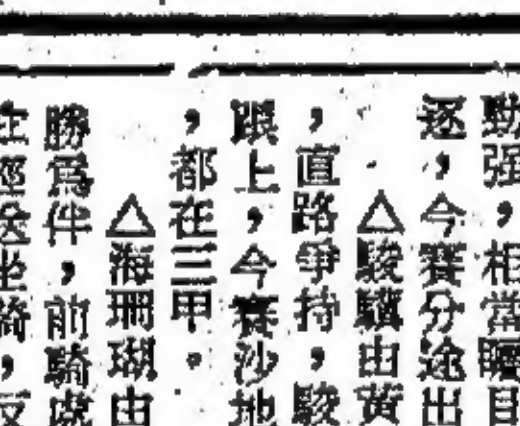 動强，相當矚目
逐，今賽分途出
△駿驥由黃
，直路爭持，駿
跟上，今賽沙地
，都在三甲。
△海珊瑚由
勝爲伴，前騎處
，反